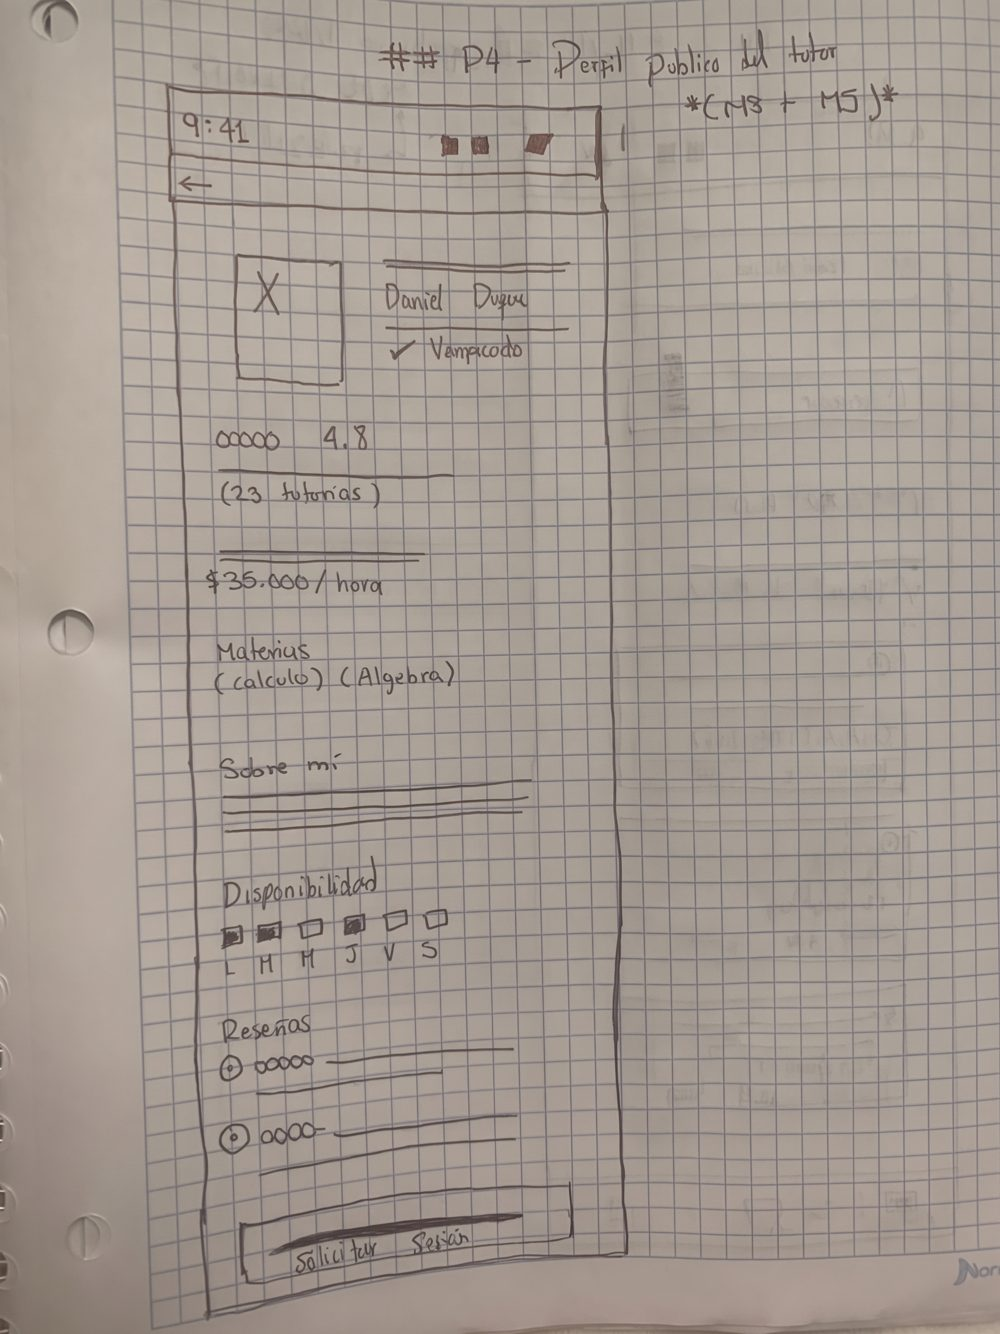 ## P4 - Perfil publico del tutor
*(M3 + M5)*
9:41
←
X
Daniel Duque
✓
00000 4.8
(23 tutorias)
$35.000/hora
Materias
(calculo) (Algebra)
Sobre mi
Disponibilidad
L M M J V S
Reseñas
00000
0000-
Solicitar Sesión
Nor